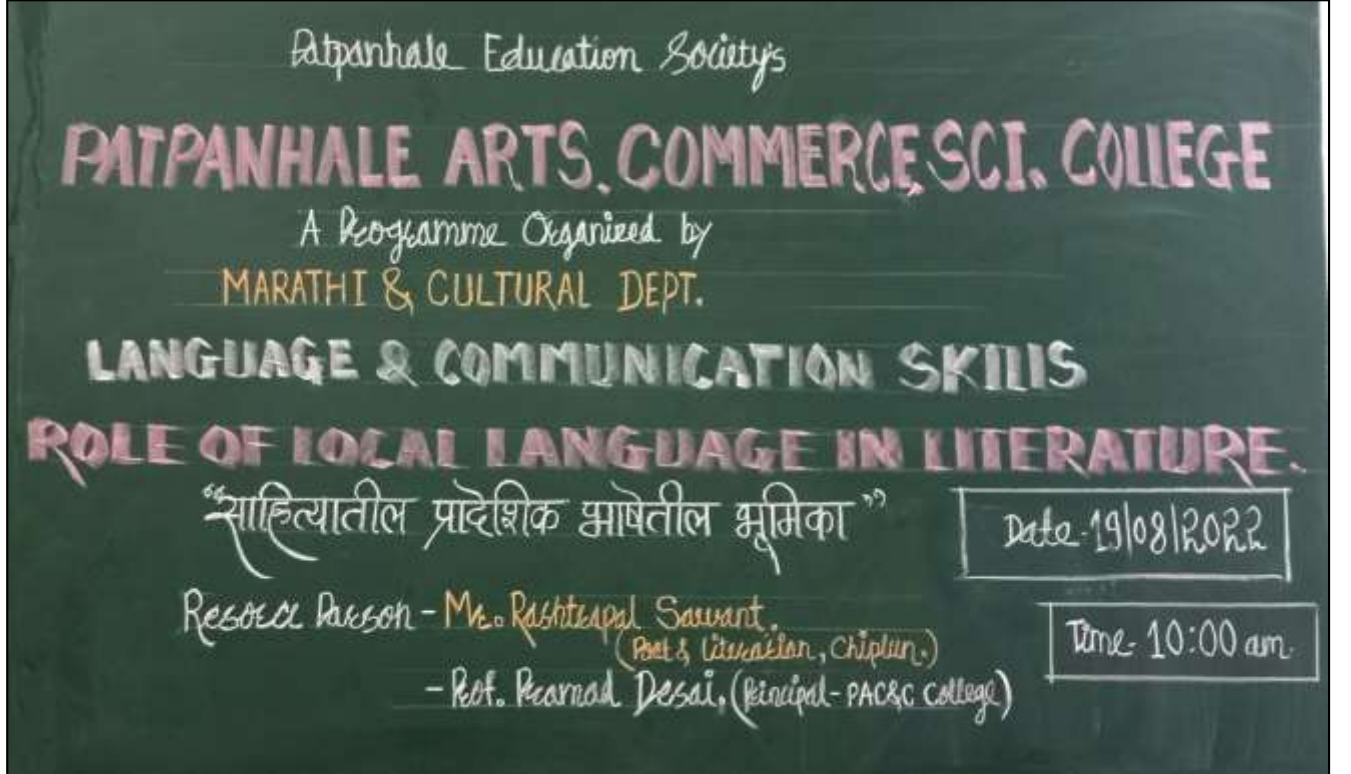 Patpanhale Education Society's
PATPANHALE ARTS, COMMERCE, SCI. COLLEGE
A Programme Organized by
MARATHI & CULTURAL DEPT.
LANGUAGE & COMMUNICATION SKILLS
ROLE OF LOCAL LANGUAGE IN LITERATURE.
"साहित्यातील प्रादेशिक भाषेतील भूमिका"
Date-19/08/2022
Resorce Person - Mr. Rashtrapal Sawant.
(Poet & Literation, Chiplun.)
Time- 10:00 am.
- Prof. Pramod Desai, (Principal- PAC&C College)